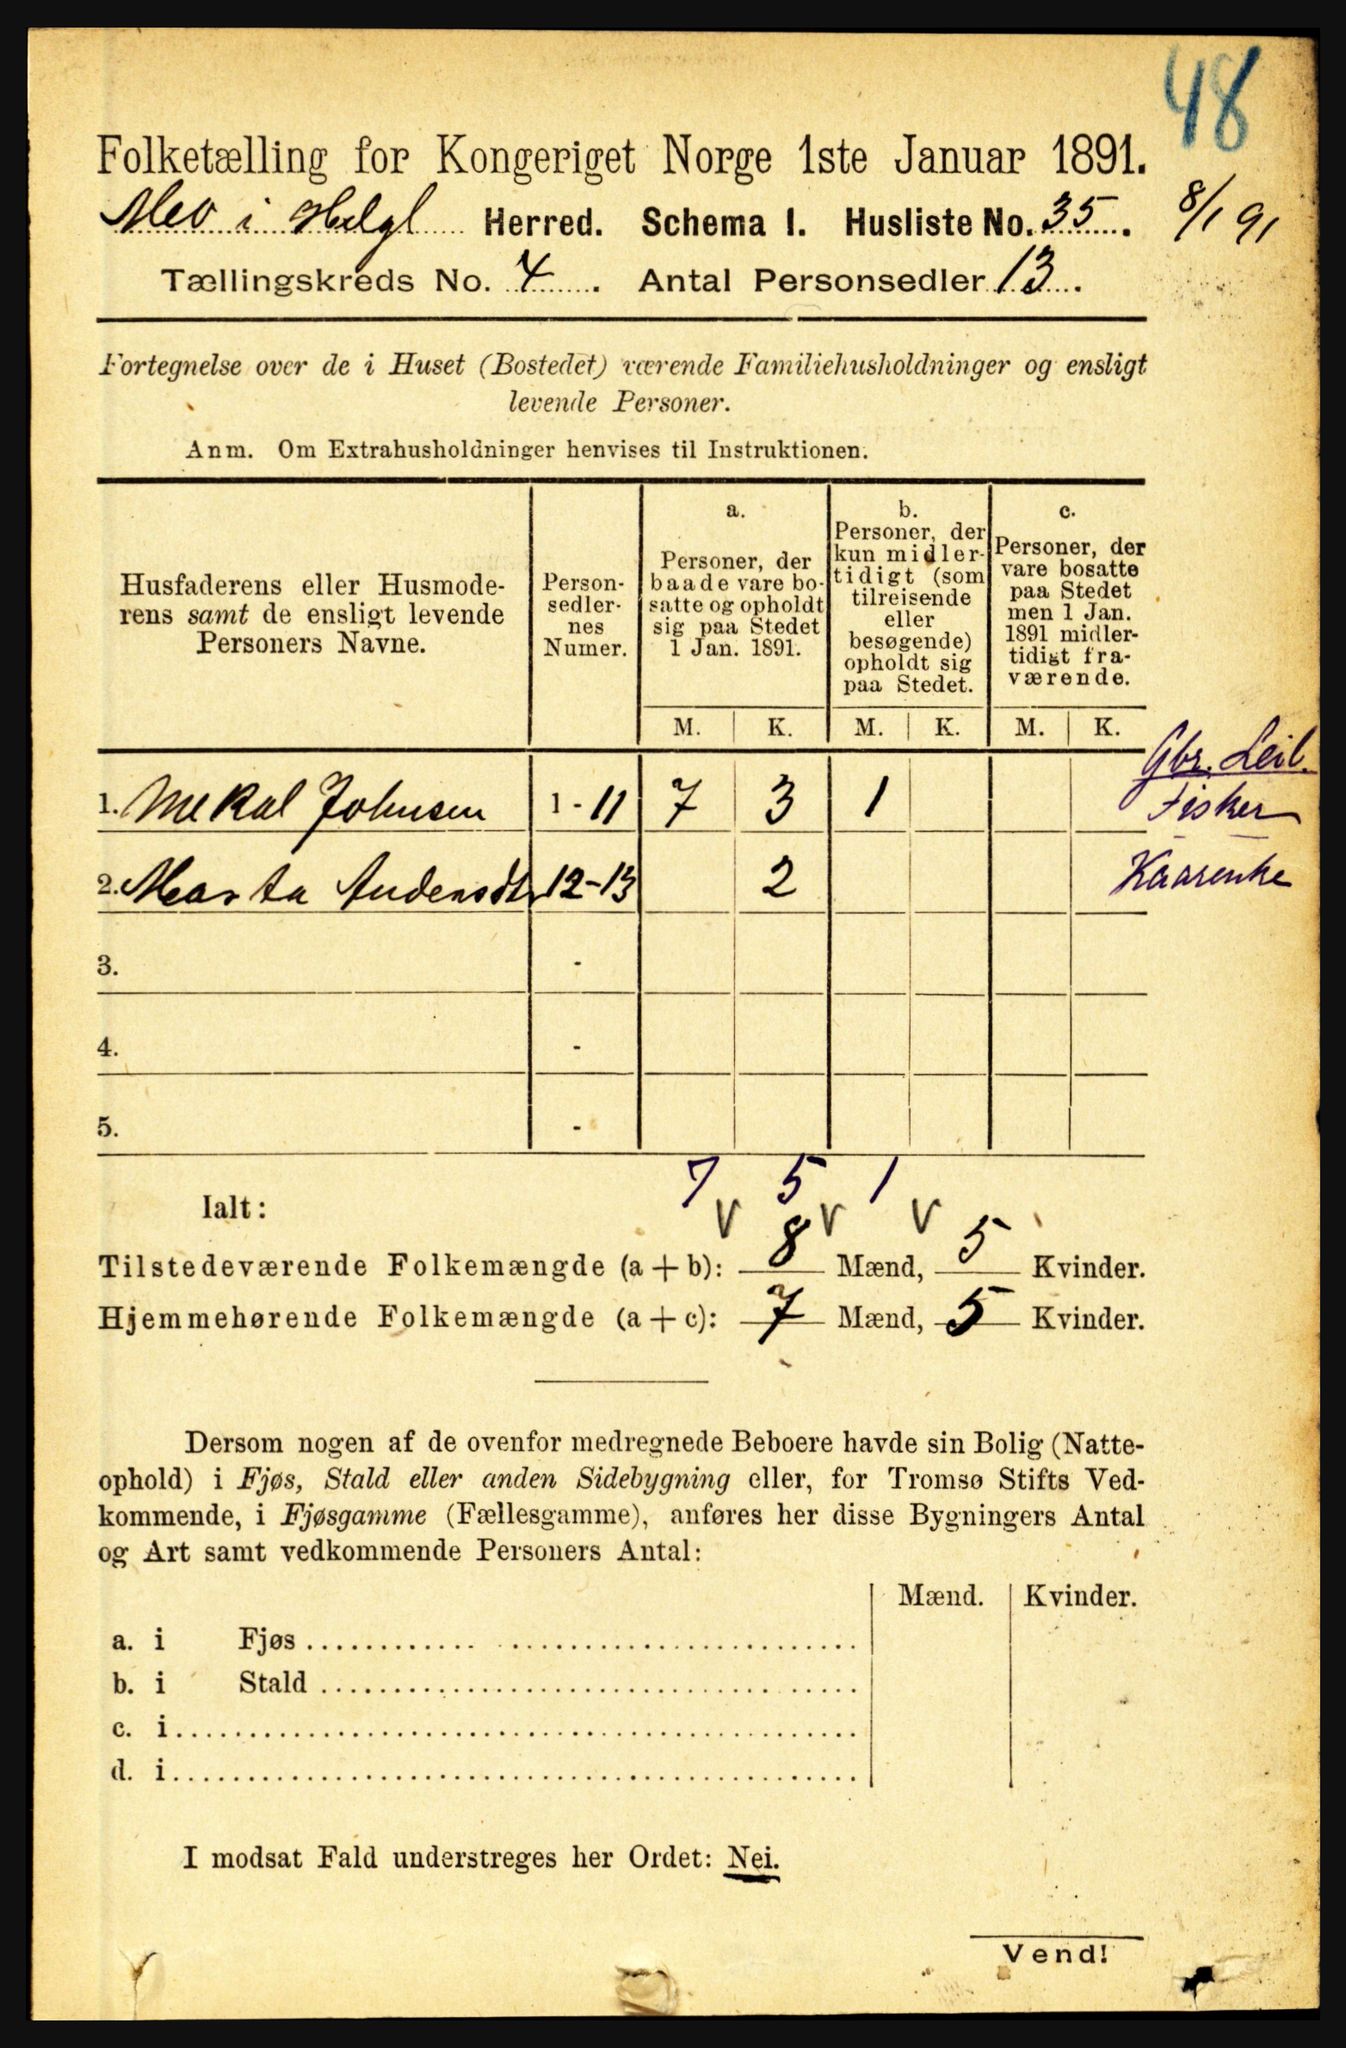 48
Folketælling for Kongeriget Norge 1ste Januar 1891.
Alev i Helgl Herred. Schema I. Husliste No. 35.
8/1 91
Tællingskreds No. 4. Antal Personsedler 13.
Fortegnelse over de i Huset (Bostedet) værende Familiehusholdninger og ensligt
levende Personer.
Anm. Om Extrahusholdninger henvises til Instruktionen.
Husfaderens eller Husmode-
rens samt de ensligt levende
Personers Navne.
Person-
sedler-
nes
Numer.
a.
Personer, der
baade vare bo-
satte og opholdt
sig paa Stedet
1 Jan. 1891.
b.
Personer, der
kun midler-
tidigt (som
tilreisende
eller
besøgende)
opholdt sig
paa Stedet.
c.
Personer, der
vare bosatte
paa Stedet
men 1 Jan.
1891 midler-
tidigt fra-
værende.
M. K. M. K. M. K.
Gbr. Leil.
1. Mekal Johnsen 1-11 7 3 1 Fisker
2. Marta Andersdt 12-13 2 Kaarenke
3. -
4. -
5. -
Ialt: 7 5 1
V V V
Tilstedeværende Folkemængde (a + b): 8 Mænd, 5 Kvinder.
Hjemmehørende Folkemængde (a + c): 7 Mænd, 5 Kvinder.
Dersom nogen af de ovenfor medregnede Beboere havde sin Bolig (Natte-
ophold) i Fjøs, Stald eller anden Sidebygning eller, for Tromsø Stifts Ved-
kommende, i Fjøsgamme (Fællesgamme), anføres her disse Bygningers Antal
og Art samt vedkommende Personers Antal:
Mænd. Kvinder.
a. i Fjøs
b. i Stald
c. i
d. i
I modsat Fald understreges her Ordet: Nei.
Vend!